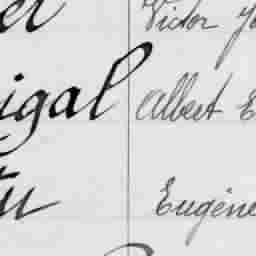 er Victor
igal Albert E
tu Eugène